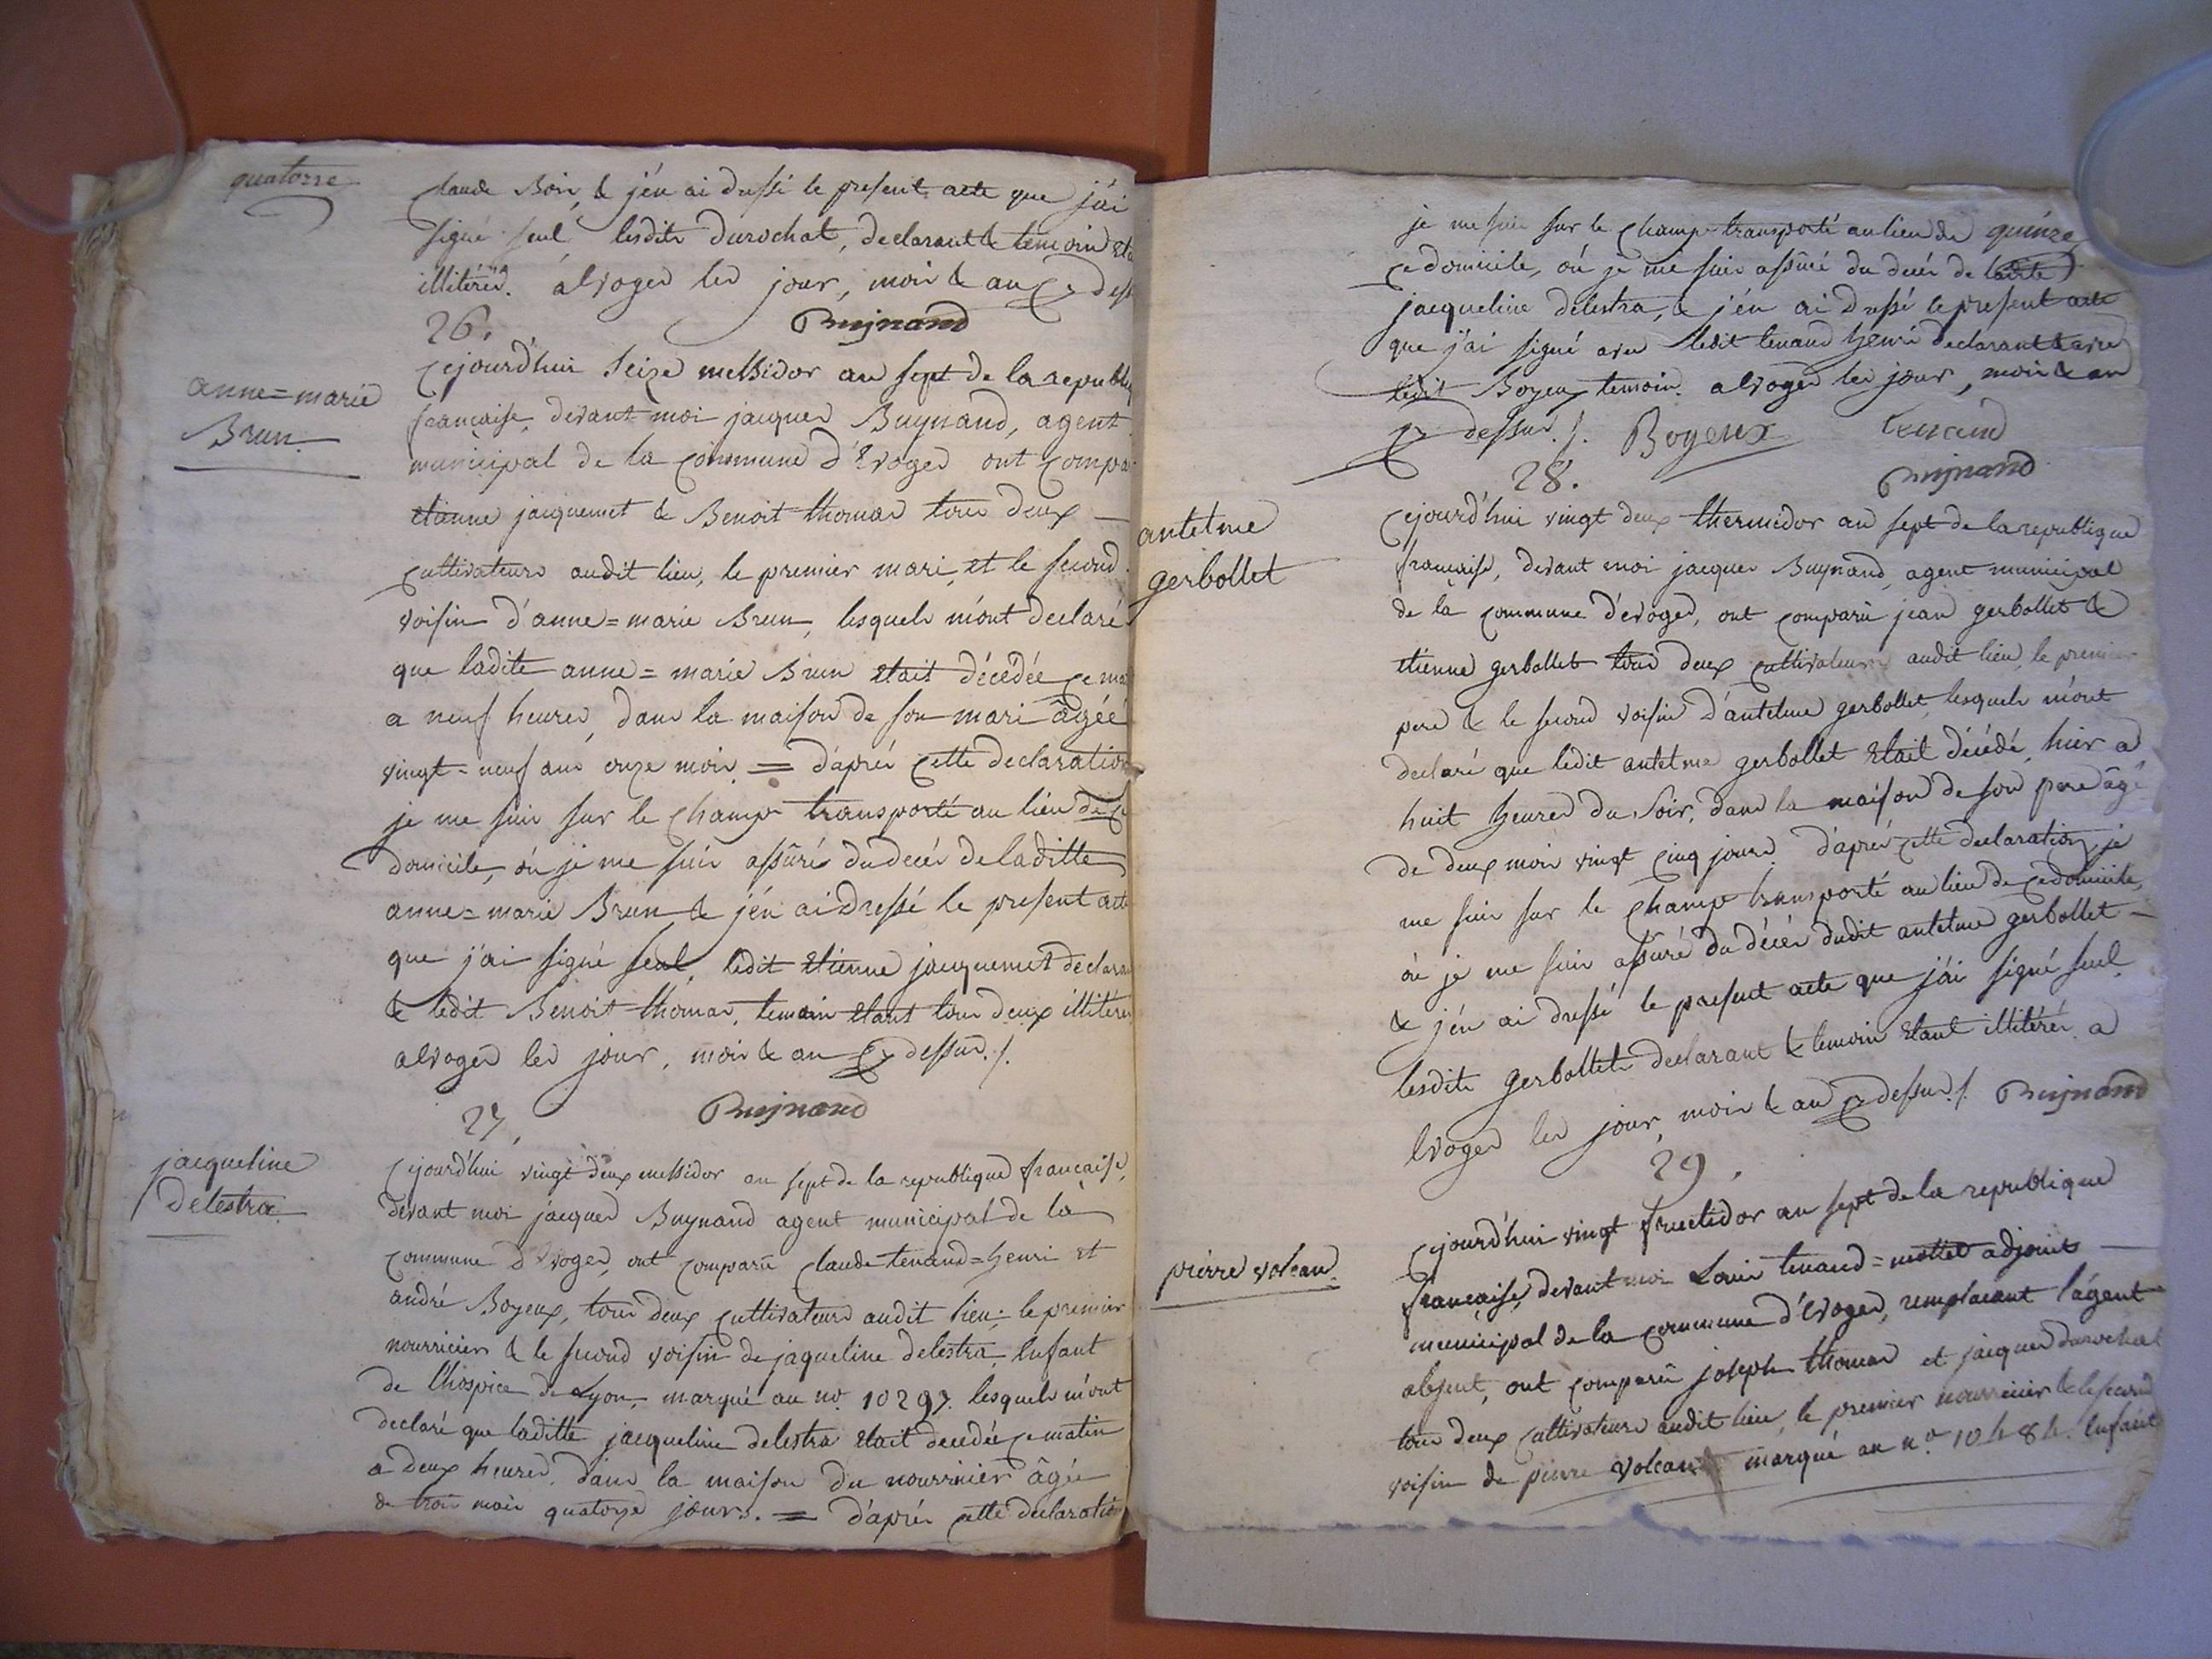 quatorze
Claude Boin, & j'én ai dressé le present acte que j'ai
signé seul, lesdits durochat, declarant & temoin eta
illitérés. a Evoges les jour, mois & an cy dess
Buynand
26.
anne=marie
Brun
Cejourd'hui seize messidor an sept de la republiq
francaise, devant moi jacques Buynand, agent
municipal de la commune d'Evoges ont compa
etienne jacquemet & Benoit thomas tous deux
cultivateurs audit lieu, le premier mari, et le second
voisin d'anne=marie Brun, lesquels m'ont declaré
que ladite anne=marie Brun etait décédée ce ma
a neuf heures, dans la maison de son mari âgée
vingt=neuf ans onze mois = d'aprés cette declaration
je me suis sur le champ transporté au lieu de ce
domicile, ou je me suis assûré du decés de laditte
anne=marie Brun & j'én ai dressé le present acte
que j'ai signé seul, ledit Etienne jacquemet declara
& ledit Benoit thomas, temoin etant tous deux illitérés
a Evoges les jour, mois & an cy dessus ./.
Buynand
27.
jacqueline
delestra
Cejourd'hui vingt deux messidor an sept de la republique francaise,
devant moi jacques Buynand agent municipal de la
commune d'Evoges, ont comparu Claude tenand=henri et
andré Boyeux, tous deux cultivateurs audit lieu, le premier
nourricier & le second voisin de jaqueline delestra, Enfant
de l'hospice de Lyon, marqué au no. 10297. lesquels m'ont
declaré que laditte jacqueline delestra etait decedée ce matin
a deux heures, dans la maison du nourricier âgée
de trois mois quatorze jours. = d'aprés cette declaration
quinze
je me suis sur le champ transporté au lieu de
ce domicile, où je me suis assûré du decés de ladite
jacqueline delestra, & j'én ai dressé le present acte
que j'ai signé avec ledit tenand henri declarant & avec
ledit Boyeux temoin. a Evoges les jour, mois & an
cy dessus ./. Boyeux tenand
Buynand
28.
antelme
gerbollet
Cejourd'hui vingt deux thermidor an sept de la republique
francaise, devant moi jacques Buynand, agent municipal
de la commune d'évoges, ont comparu jean gerbollet &
etienne gerbollet tous deux cultivateurs audit lieu, le premier
pere & le second voisin d'antelme gerbollet, lesquels m'ont
declaré que ledit antelme gerbollet Etait décédé, hier a
huit heures du soir, dans la maison de son pere âgé
de deux mois vingt cinq jours. d'aprés cette declaration, je
me suis sur le champ transporté au lieu de ce domicile,
où je me suis assûré du décés dudit antelme gerbollet
& j'én ai dressé le present acte que j'ai signé seul
lesdits gerbollets declarant & temoin etant illitérés. a
Evoges les jour, mois & an cy dessus ./. Buynand
29.
pierre volcan
Cejourd'hui vingt fructidor an sept de la republique
francaise, devant moi Louis tenand=mottet adjoint
municipal de la commune d'Evoges, remplacant l'agent
absent, ont comparu joseph thomas et jacques durochat
tous deux cultivateurs audit lieu, le premier nourricier & le second
voisin de pierre volcan marqué au n.o 10484. Enfant